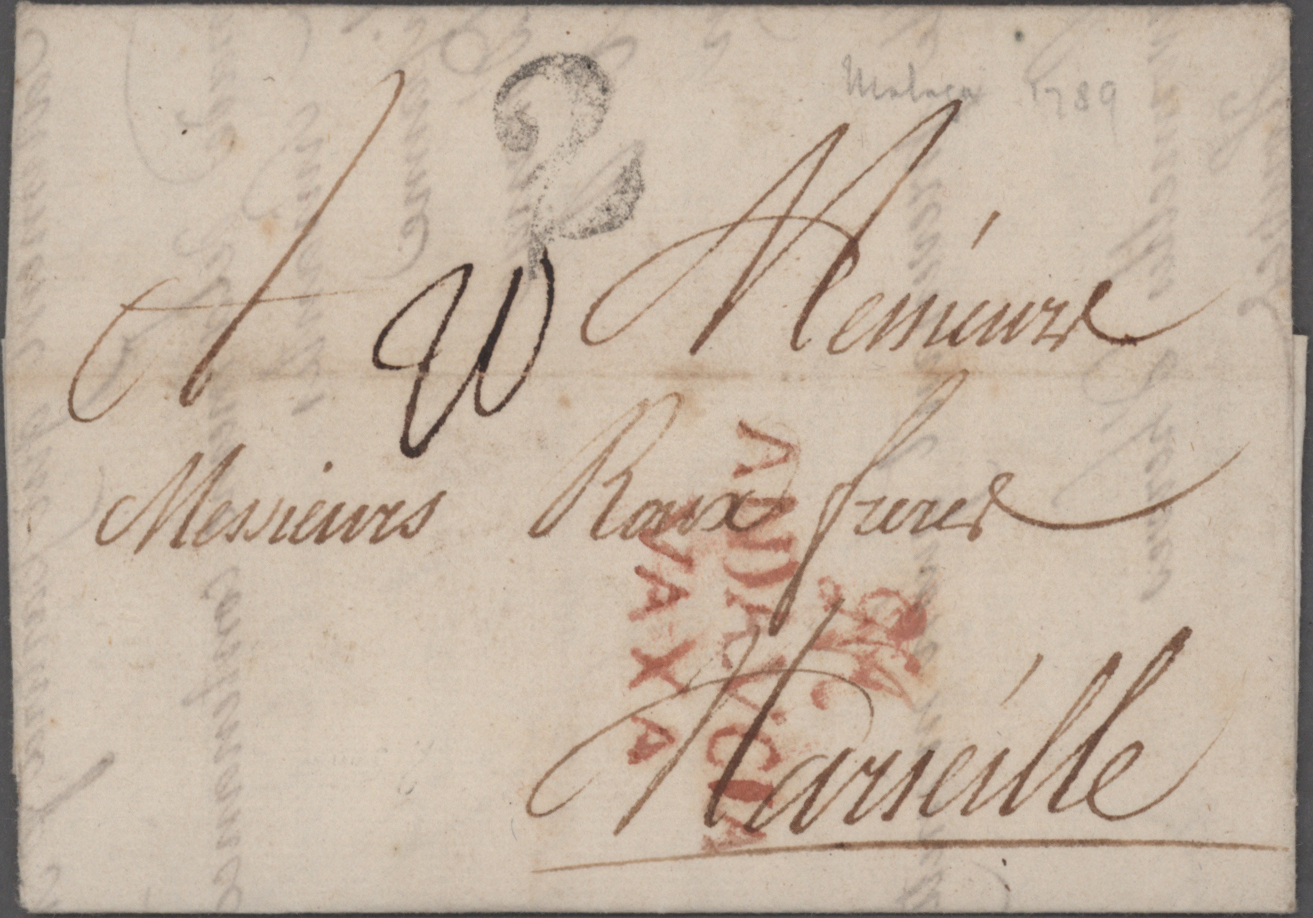 Malaga 1789
A Messieurs
Messieurs Roux freres
Marseille
ANDALUCIA
VAXA